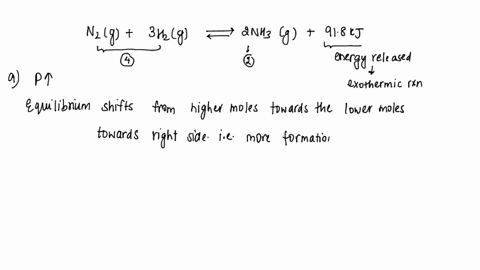 N₂(g) + 3H₂(g) ⇌ 2NH₃ (g) + 91.8 kJ
④ ② energy released
exothermic rxn
a) P↑
Equilibrium shifts from higher moles towards the lower moles
towards right side. i.e. more formation